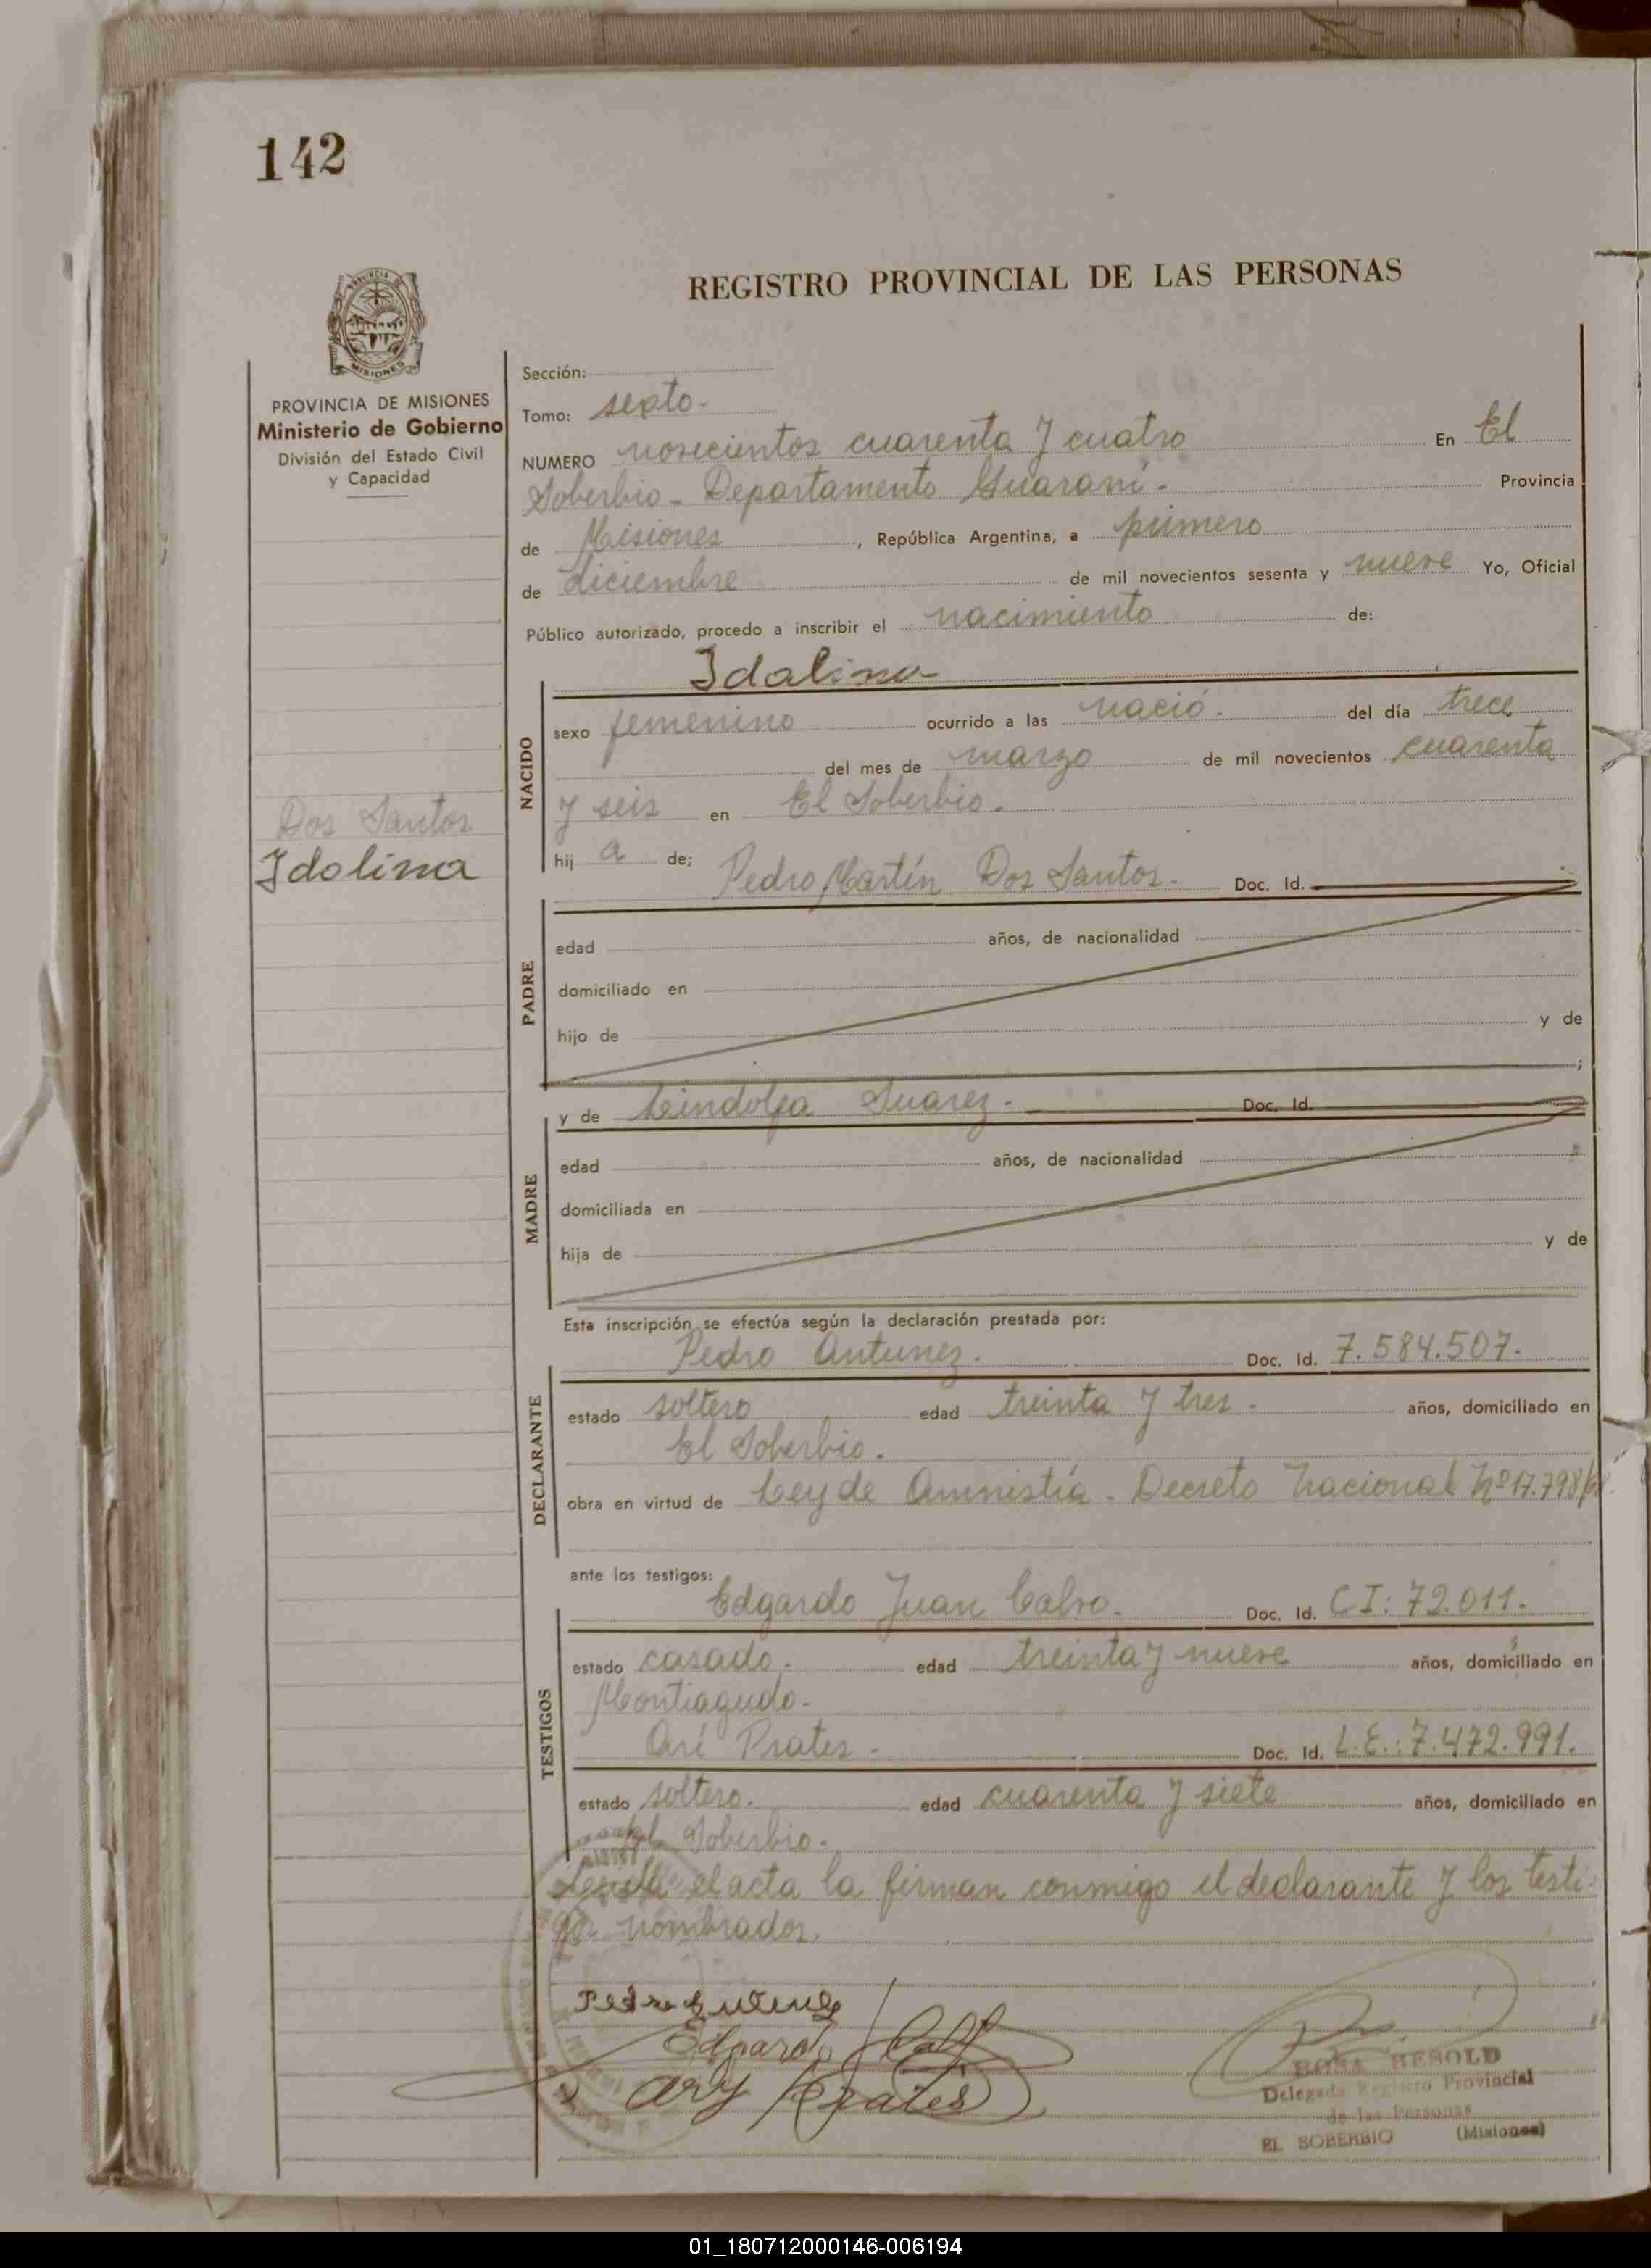 142
REGISTRO PROVINCIAL DE LAS PERSONAS
MISIONES
PROVINCIA DE MISIONES
Ministerio de Gobierno
División del Estado Civil
y Capacidad
Dos Santos
Idolina
Sección:
Tomo: sexto-
NUMERO novecientos cuarenta y cuatro En El
Soberbio - Departamento Guaraní - Provincia
de Misiones, República Argentina, a primero
de diciembre de mil novecientos sesenta y nueve Yo, Oficial
Público autorizado, procedo a inscribir el nacimiento de:
Idalina
NACIDO
sexo femenino ocurrido a las nació. del día trece
del mes de marzo de mil novecientos cuarenta
y seis en El Soberbio.
hij a de; Pedro Martín Dos Santos - Doc. Id.
PADRE
edad años, de nacionalidad
domiciliado en
hijo de y de
;
MADRE
y de Lindolfa Suarez - Doc. Id.
edad años, de nacionalidad
domiciliada en
hija de y de
Esta inscripción se efectúa según la declaración prestada por:
DECLARANTE
Pedro Antunez. Doc. Id. 7.584.507.
estado soltero edad treinta y tres - años, domiciliado en
El Soberbio.
obra en virtud de Ley de Amnistía - Decreto Nacional Nº 17.798/68.
ante los testigos:
TESTIGOS
Edgardo Juan Calvo. Doc. Id. CI: 72.011.
estado casado. edad treinta y nueve años, domiciliado en
Montiagudo.
Arí Prates - Doc. Id. L.E.: 7.472.991.
estado soltero. edad cuarenta y siete años, domiciliado en
El Soberbio.
Leída el acta la firman conmigo el declarante y los testi-
gos nombrados.
Pedro Antunez
Edgardo J Calvo
Ary Prates
ROSA BESOLD
Delegada Registro Provincial
de las Personas
EL SOBERBIO (Misiones)
01_180712000146-006194